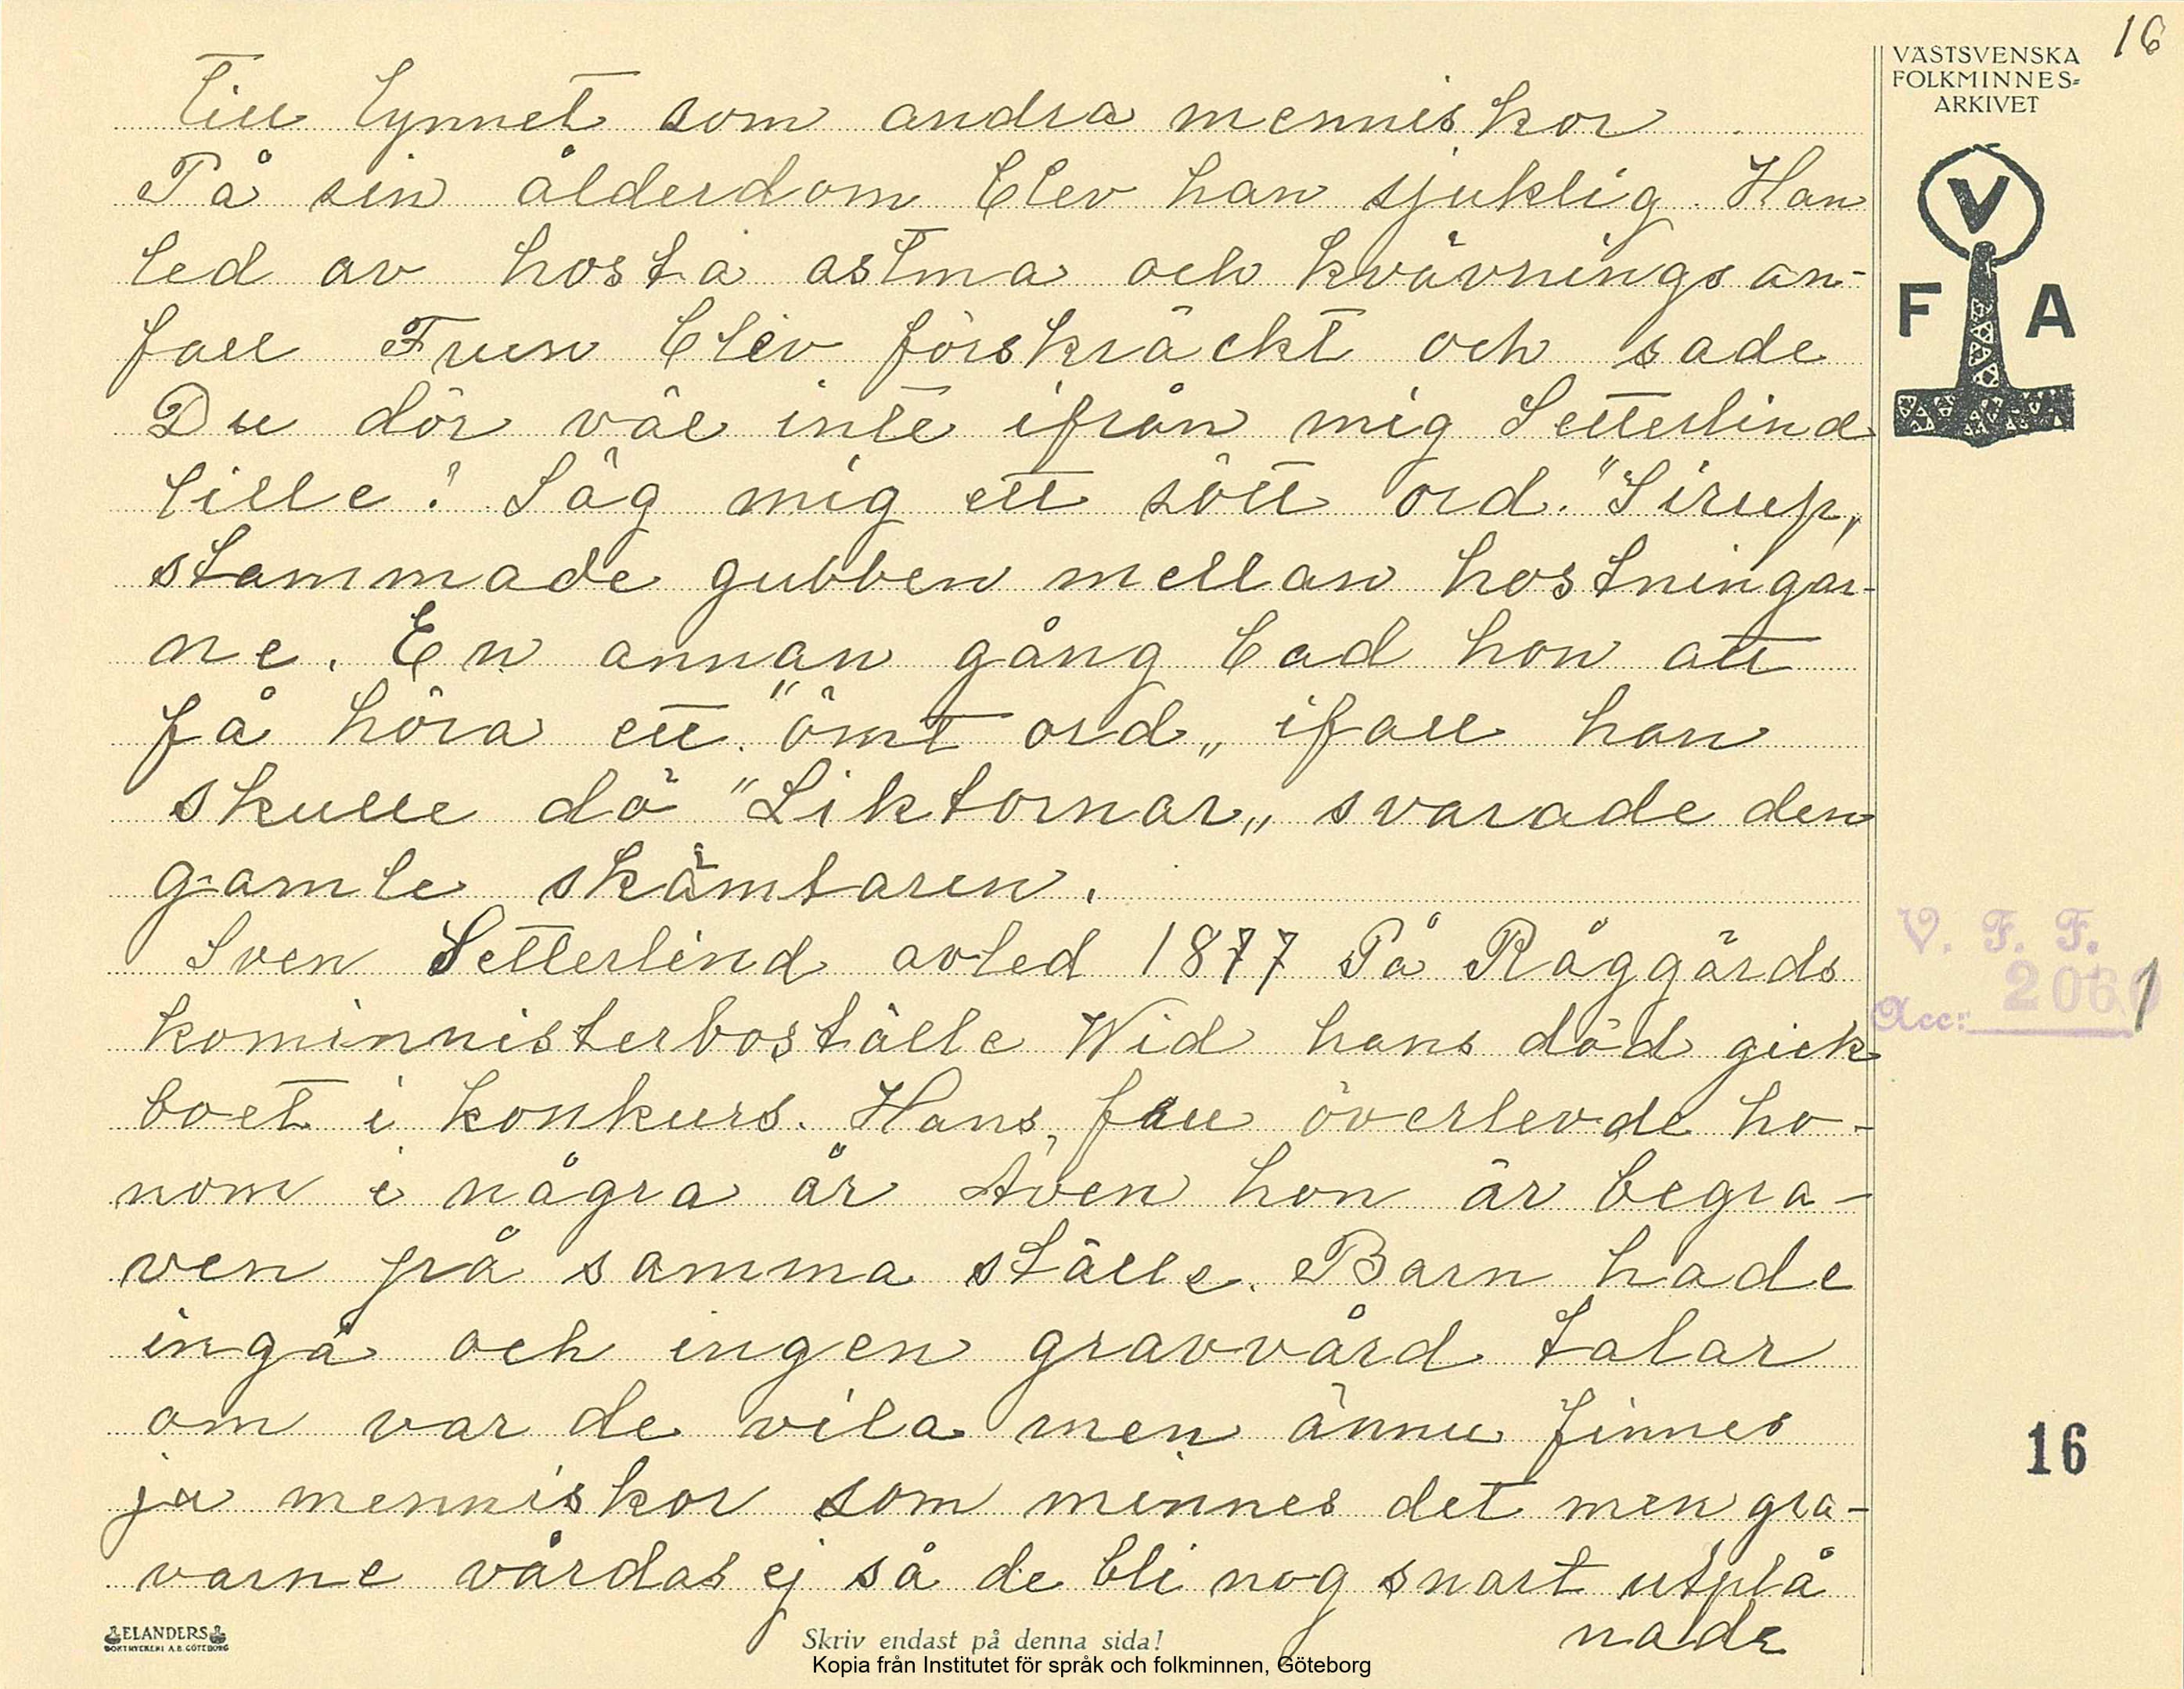 16
VÄSTSVENSKA
FOLKMINNES=
ARKIVET
V
F A
till lynnet som andra menniskor
På sin ålderdom blev han sjuklig. Han
led av hosta astma och kvävningsan-
fall Frun blev förskräckt och sade
Du dör väl inte ifrån mig Setterlind
lille? Säg mig ett sött ord. "Sirup,
stammade gubben mellan hostningar-
ne. En annan gång bad hon att
få höra ett "ömt ord„ ifall han
skulle dö "Liktornar„ svarade den
gamle skämtaren.
Sven Setterlind avled 1877 På Råggärds
kominnisterboställe Wid hans död gick
boet i konkurs. Hans fru överlevde ho-
nom i några år Även hon är begra-
ven på samma ställe. Barn hade
ingå och ingen gravvård talar
om var de vila men ännu finnes
ja menniskor som minnes det men gra-
varne vårdas ej så de bli nog snart utplå
nade
V. F. F.
Acc: 2061
16
ELANDERS
BOKTRYCKERI A.B. GÖTEBORG
Skriv endast på denna sida!
Kopia från Institutet för språk och folkminnen, Göteborg